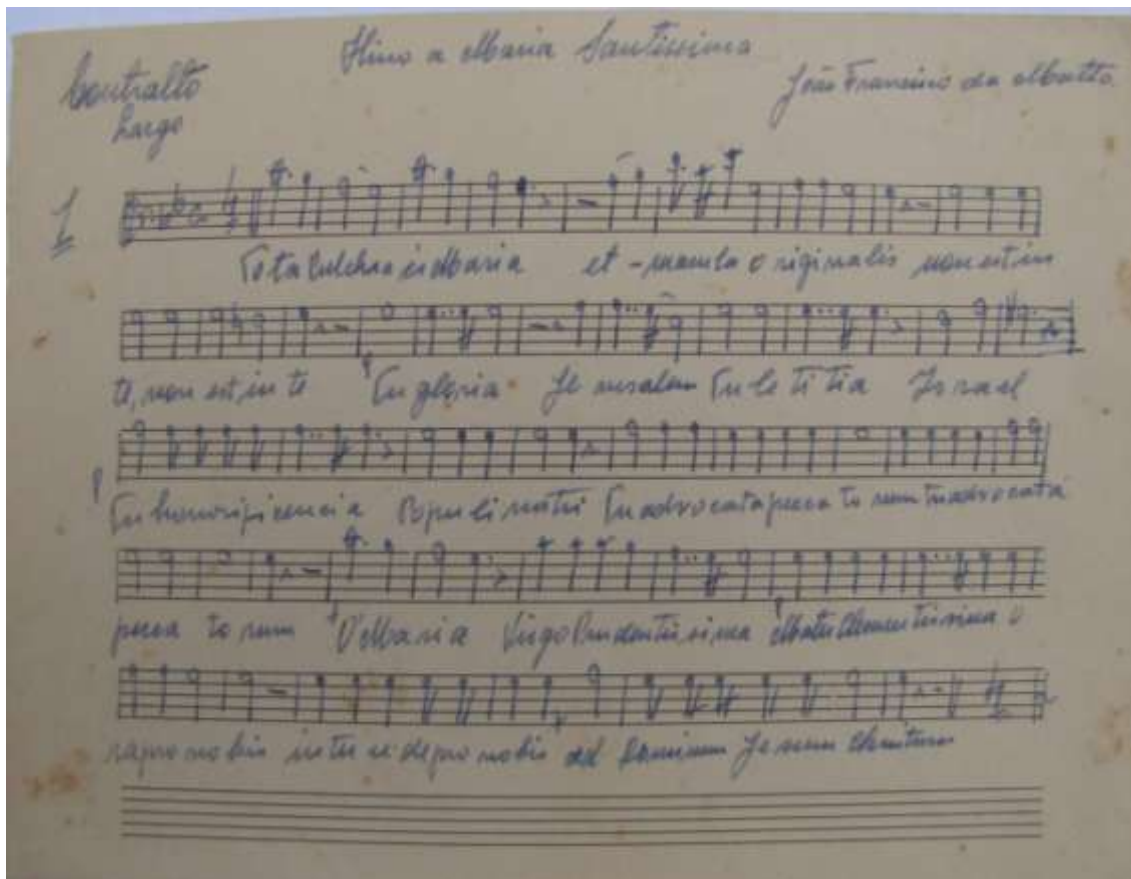 Hino a Maria Santissima
Contralto
Largo
João Francisco da Matta
1
Tota Pulchra es Maria et - macula originalis non est in
te, non est in te Tu gloria Je rusalem Tu le ti tia Is rael
Tu honorificencia Populi nostri Tu advocata pecca to rum tu advocata
pecca to rum O Maria Virgo Prudentissima Mater Clementissima o
ra pro nobis inter ce de pro nobis ad Dominum Jesum Christum